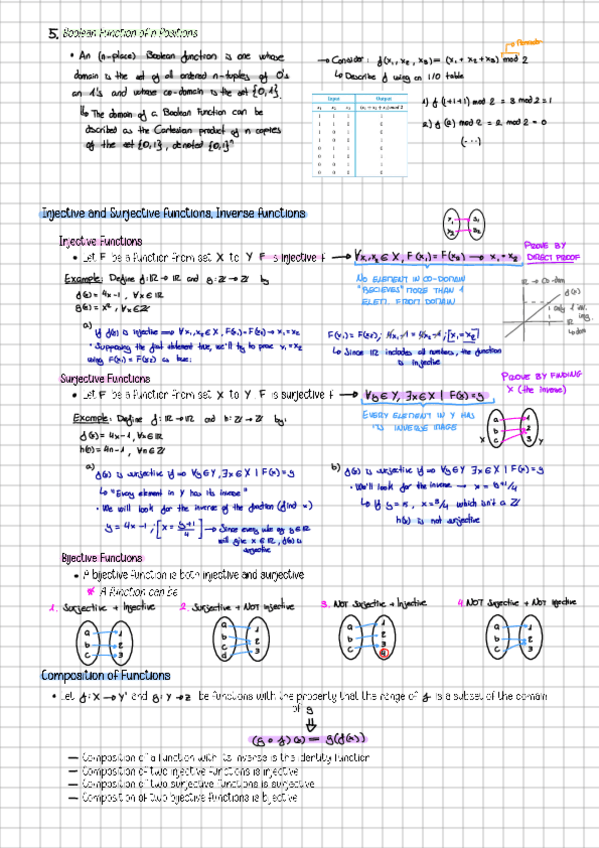 5. Boolean Function of n Positions
• An (n-place) Boolean function is one whose
domain is the set of all ordered n-tuples of 0's
an 1's and whose co-domain is the set {0,1}.
↳ The domain of a Boolean Function can be
described as the Cartesian product of n copies
of the set {0,1}, denoted {0,1}ⁿ
→ Consider: f(x₁, x₂, x₃) = (x₁ + x₂ + x₃) mod 2
↳ Describe f using an I/O table
Input Output
x₁ x₂ x₃
1) f (1+1+1) mod 2 = 3 mod 2 = 1
2) f (2) mod 2 = 2 mod 2 = 0
(...)
Injective and Surjective functions, Inverse functions
Injective Functions
• Let F be a function from set X to Y. F is injective if → ∀x₁,x₂ ∈ X, F(x₁) = F(x₂) → x₁ = x₂
PROVE BY
DIRECT PROOF
NO ELEMENT IN CO-DOMAIN
"RECIEVES" MORE THAN 1
ELEM. FROM DOMAIN
Example: Define f: ℝ → ℝ and g: ℤ → ℤ by
f(x) = 4x-1, ∀x ∈ ℝ
g(x) = x², ∀x ∈ ℤ
a)
if f(x) is injective ⟹ ∀x₁,x₂ ∈ X, F(x₁) = F(x₂) → x₁ = x₂
• Supposing the first statement true, we'll try to prove x₁ = x₂
using F(x₁) = F(x₂) as true:
F(x₁) = F(x₂); 4x₁-1 = 4x₂-1; [x₁ = x₂]
↳ Since ℝ includes all numbers, the function
is injective
Surjective Functions
• Let F be a function from set X to Y. F is surjective if → ∀y ∈ Y, ∃x ∈ X | F(x) = y
PROVE BY FINDING
X (the inverse)
EVERY ELEMENT IN Y HAS
ITS INVERSE IMAGE
Example: Define f: ℝ → ℝ and h: ℤ → ℤ by:
f(x) = 4x-1, ∀x ∈ ℝ
h(n) = 4n-1, ∀n ∈ ℤ
a)
f(x) is surjective if ⟹ ∀y ∈ Y, ∃x ∈ X | F(x) = y
↳ "Every element in Y has its inverse"
• We will look for the inverse of the function (find x)
y = 4x-1; [x = y+1/4] → Since every value of y ∈ ℝ
will give x ∈ ℝ, f(x) is
surjective
b) f(x) is surjective if ⟹ ∀y ∈ Y ∃x ∈ X | F(x) = y
• We'll look for the inverse → x = y+1/4
h(x) is not surjective
Bijective Functions
• A bijective function is both injective and surjective
* A function can be
1. Surjective + Injective
2. Surjective + NOT Injective
3. NOT Surjective + Injective
4. NOT Surjective + NOT Injective
Composition of Functions
• Let f: X → Y' and g: Y → Z be functions with the property that the range of f is a subset of the domain
of g
(g ∘ f)(x) = g(f(x))
— Composition of a function with its inverse is the identity function
— Composition of two injective functions is injective
— Composition of two surjective functions is surjective
— Composition of two bijective functions is bijective